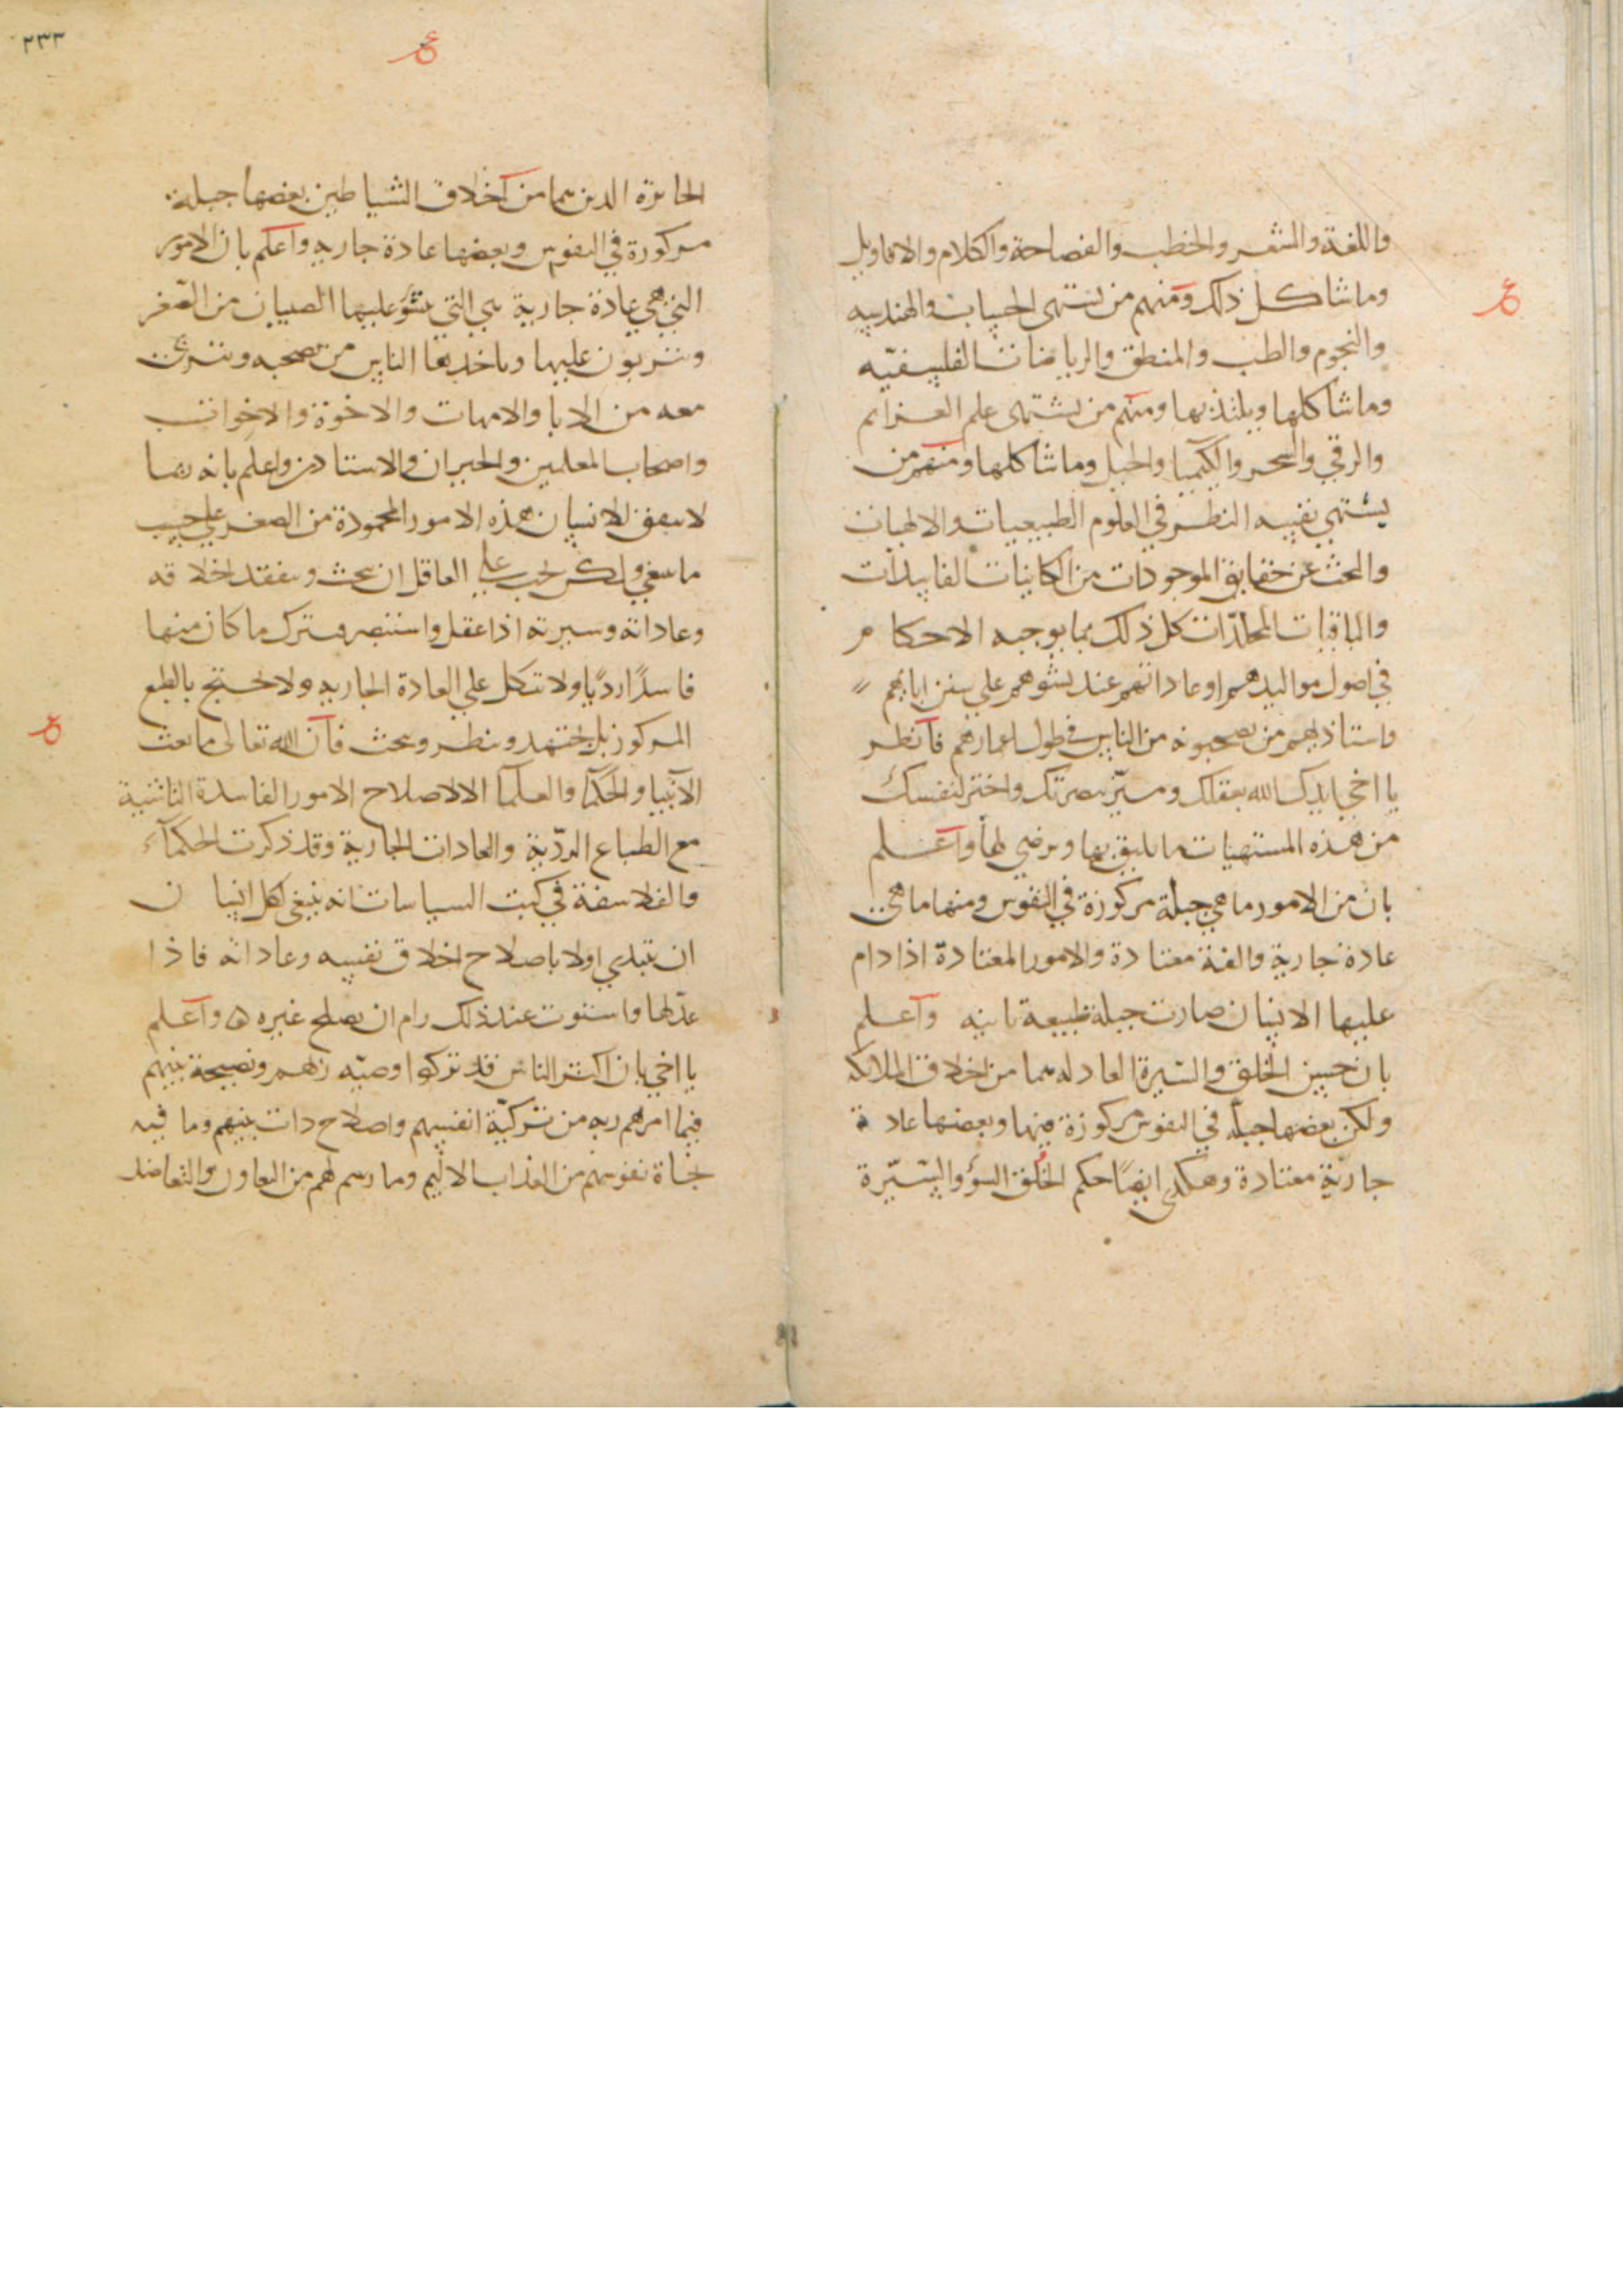 واللغة والشعر والخطب والفصاحة والكلام والاقاويل
وما شاكل ذلك ومنهم من يشتهى الحساب والهندسه
والنجوم والطب والمنطق والرياضات الفلسفيّه
وما شاكلها ويلتذ بها ومنهم من يشتهى علم العزايم
والرقي والسحر والكيميا والحيل وما شاكلها ومنهم من
يشتهي نفسه النظر في العلوم الطبيعيات والالهيات
والبحث عن حقايق الموجودات من الكاينات الفاسدات
والباقيات المخلدات كل ذلك مما يوجبه الاحكام
في اصول مواليدهم او عاداتهم عند نشوهم علي سنن ابايهم
واستاذيهم من يصحبونه من الناس في طول اعمارهم فانظر
يا اخي ايدك الله بعقلك وميّز ببصرتك واختر لنفسك
من هذه المشتهيات ما يليق بها وترضي لها واعلم
بان من الامور ما هي جبلة مركوزة في النفوس ومنها ما هي
عادة جارية والفة معتادة والامور المعتادة اذا دام
عليها الانسان صارت جبلة طبيعة ثانيه واعلم
بان حسن الخلق والسّيرة العادله هما من اخلاق الملائكه
ولكن بعضها جبلّه في النفوس مركوزة فيها وبعضها عادة
جاريّة معتادة وهكدى ايضًا حكم الخُلق السوٌ والسّيرة
٢٣٣
الجائرة الدين هما من اخلاق الشياطين بعضها جبلة
مركوزة في النفوس وبعضها عادة جاريه واعلم بان الامور
التي هي عادة جارية هي التي ينشؤ عليها الصبيان من الصّغر
ويتربون عليها وياخذ بها الناس من يصحبه ويتربى
معه من الابا والامهات والاخوة والاخوات
واصحاب المعلمين والجيران والاستادين واعلم بانه ربما
لا يتفق للانسان هذه الامور المحمودة من الصغر علي حسب
ما ينبغي ولكن يجب علي العاقل ان يبحث ويتفقد اخلاقه
وعاداته وسيرته اذا عقل واستبصر ويترك ما كان منها
فاسدًا رديًا ولا يتكل علي العادة الجاريه ولا يحتج بالطبع
المركوز بل يجتهد وينظر ويبحث فان الله تعالى ما بعث
الانبيا والحكما والعلما الا لاصلاح الامور الفاسدة الناشية
مع الطباع الرديّة والعادات الجارية وقد ذكرت الحكمآء
والفلاسفة في كتب السياسات انه ينبغي لكل انسان
ان يبتدي اولا باصلاح اخلاق نفسه وعاداته فاذا
عدّلها واستوت عند ذلك رام ان يصلح غيره ه واعلم
يا اخي بان اكثر الناس قد تركوا وصيّه ربهم ونصيحة نبيهم
فيما امرهم ربه من تزكيّة انفسهم واصلاح دات بينهم وما فيه
نجاة نفوسهم من العذاب الاليم وما رسم لهم من التعاون والتعاضد